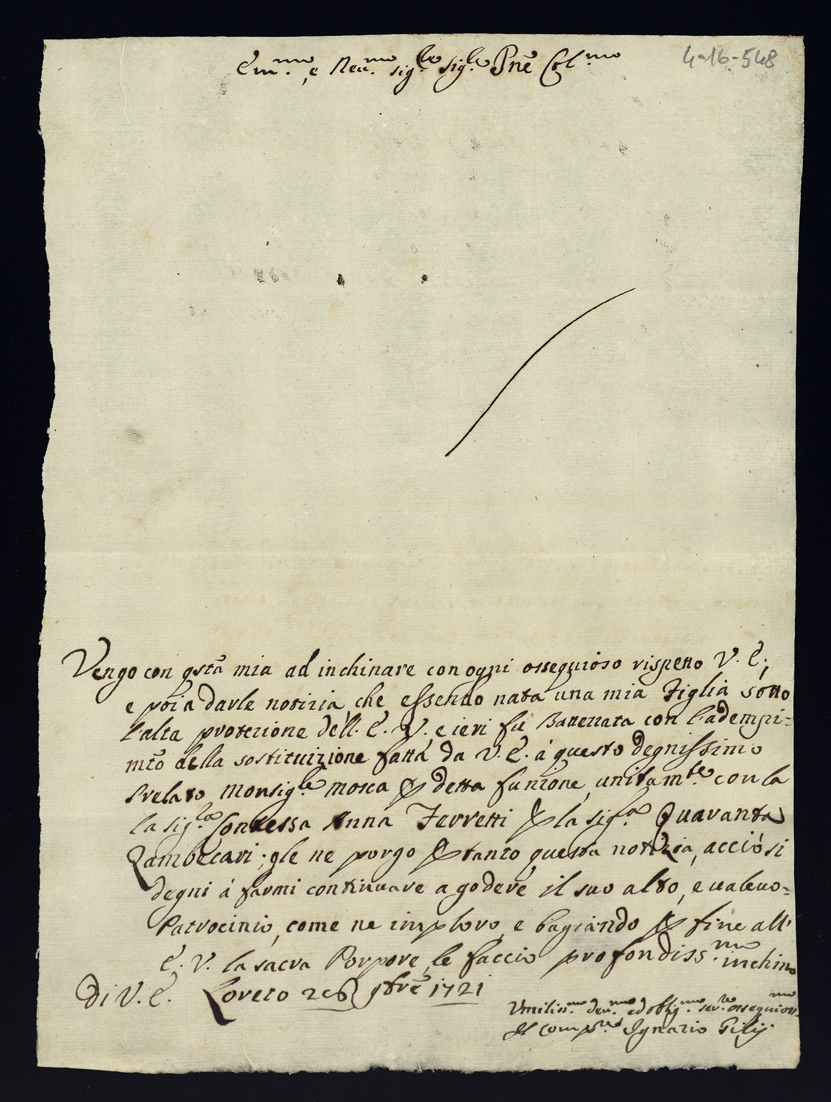 4-16-548
Em.mo, e Reu.mo sig.le sig.le Pne Col.mo
Vengo con qsta mia ad inchinare con ogni ossequioso rispetto V. E.,
e poi a darle notizia, che essendo nata una mia Figlia sotto
l'alta protezione dell'. E. V. e ieri fù Battezzata con l'adempi=
mto della sostituizione fatta da V. E. à questo degnissimo
Prelato Monsig.le Mosca p detta funzione, unitam.te con la
la sig.ra Contessa Anna Ferretti p la sig.ra Quaranta
Zambecari; gle ne porgo p tanto questa notizia, acciò si
degni à farmi continuare a godere il suo alto, e ualeuo=
Patrocinio, come ne imploro, e bagiando p fine all'
E. V. la sacra Porpore, le faccio profondiss.mo inchino
Di V. E. Loreto 9bre 1721
Vmilis.mo deu.mo ed obblig.mo ser.re ossequios.mo
Ignazio Gilij